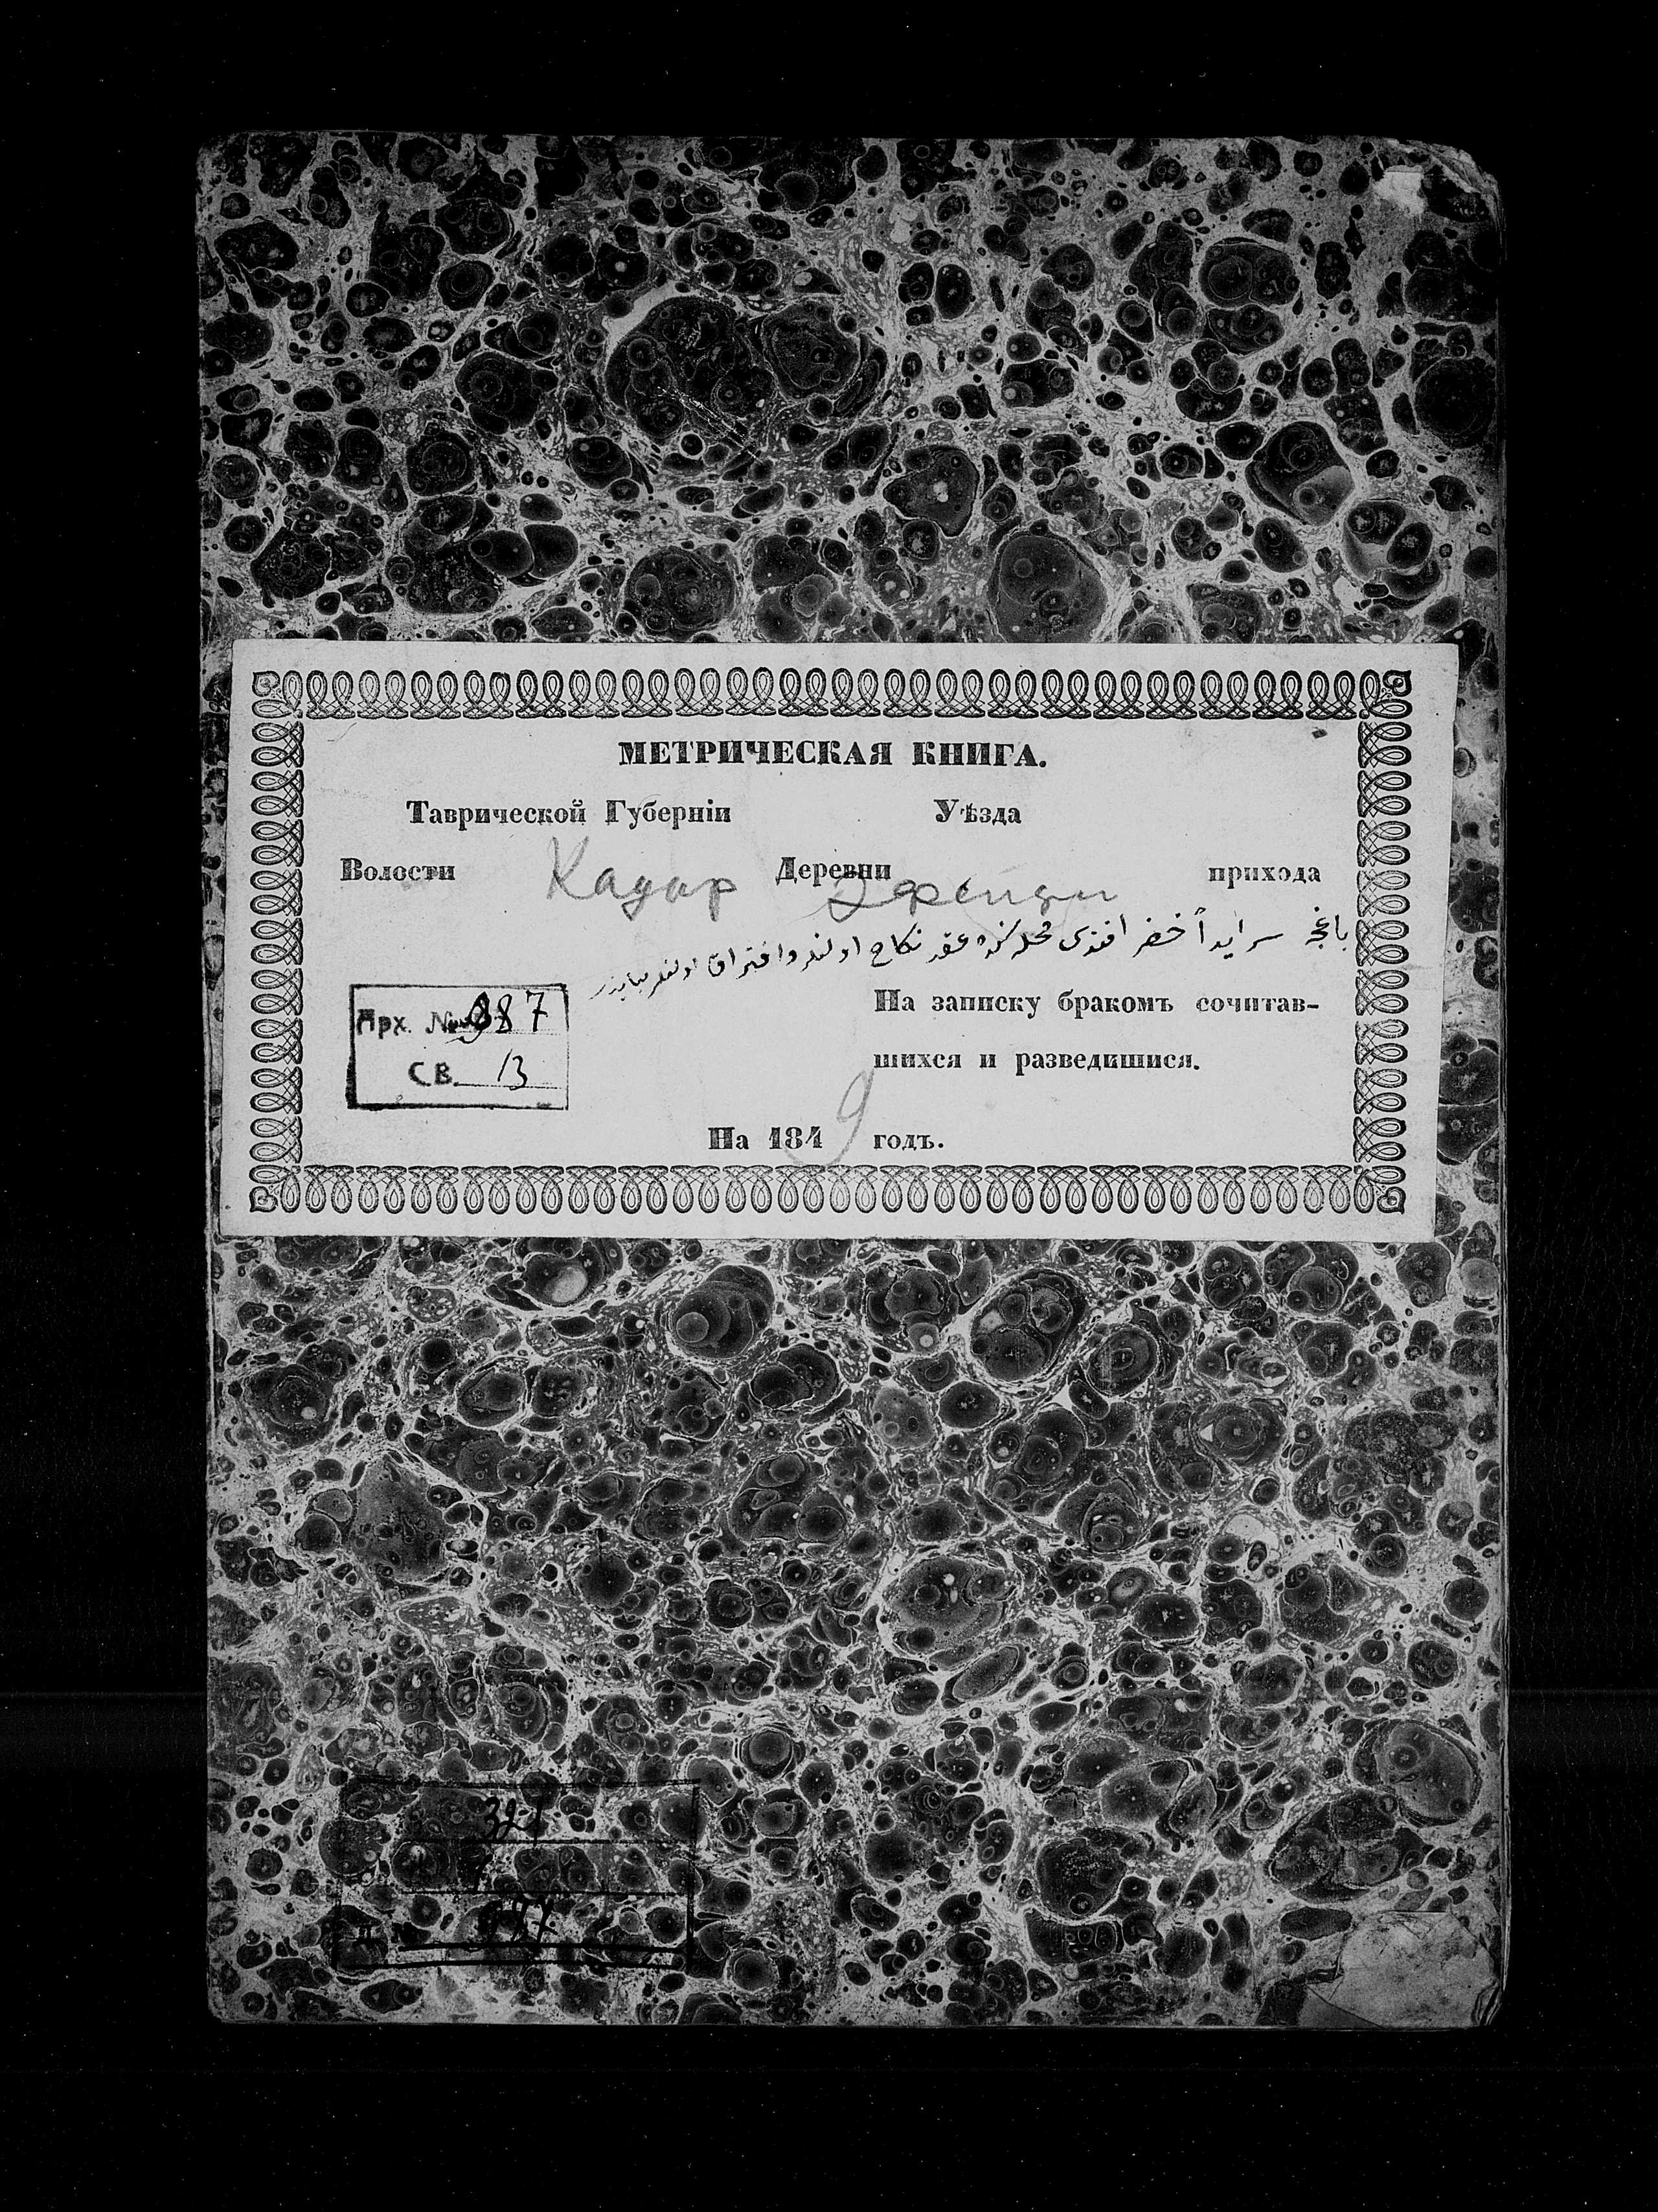 МЕТРИЧЕСКАЯ КНИГА.
Таврической Губерніи Уѣзда
Волости Кадыр Деревни Эфенди прихода
باغچه سرايده خضر افندى محله سنده عقد نكاح اولنلر وافتراق اولنلر
Арх. № 987
СВ. 13
На записку бракомъ сочитав-
шихся и разведшися.
На 1849 годъ.
321
987